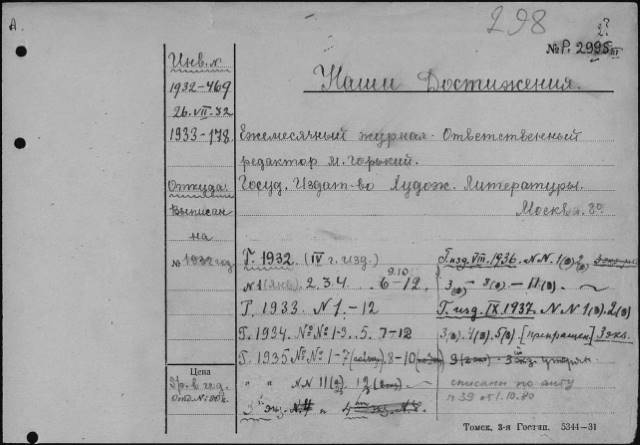 А.
298
№Р. 2995
Инв. №
1932-469
26.VII.32
1933-178
Откуда:
Выписан
на
№ 1932 год
Цена
Наши Достижения.
Ежемесячный журнал. Ответственный
редактор М. Горький.
Госуд. Издат-во Худож. Литературы.
Москва. 8º
Г. 1932 (IV г. изд.)
№1 (янв.) 2. 3. 4. 6-12.
9.10
Г. 1933 № 1.-12
Г. 1934 №№ 1-3. 5. 7-12
Г. 1935 №№ 1-7 8-10
" " №№ 11(2) 12
Г. изд. VIII. 1936. №№ 1(2) 2(2)
3(2) - 8(2) - 11(2)
Г. изд. IX. 1937. №№ 1(2). 2(2)
3(2). 4(2). 5(2). [прекращен] 3 экз.
утерян
списаны по акту
№39 от 1.10.80
Томск, 3-я Гостип. 5344—31